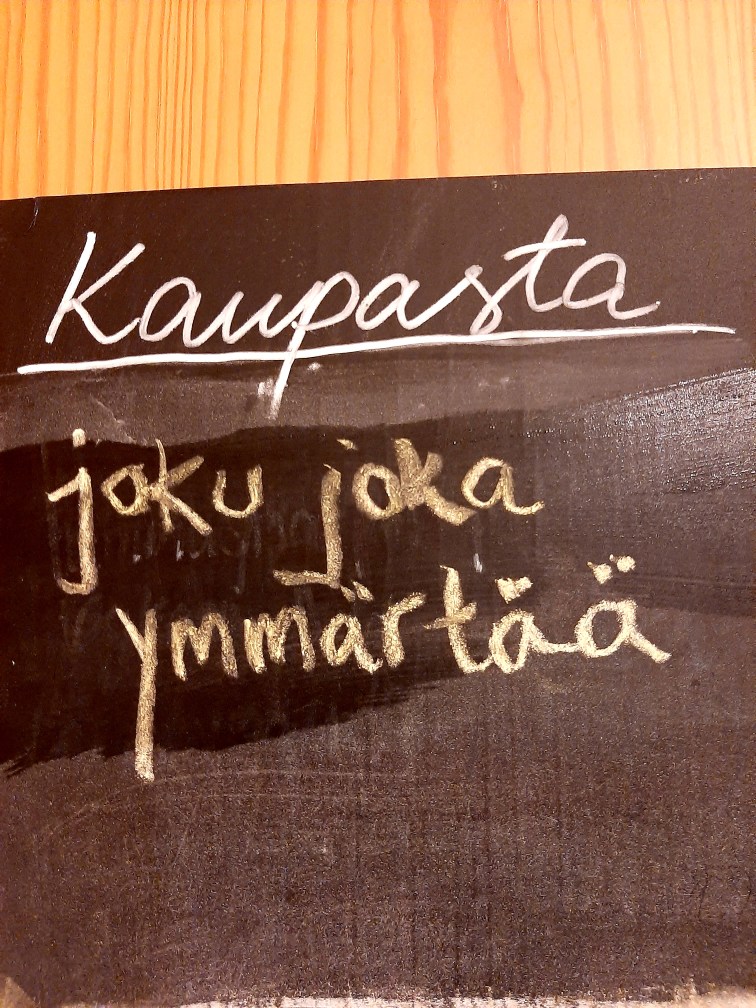 Kaupasta
joku joka
ymmärtää